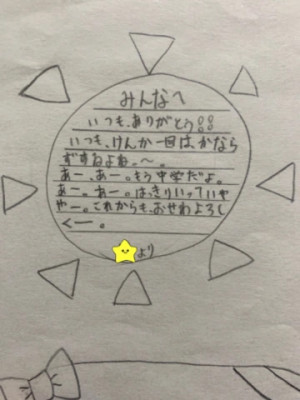 みんなへ
いつも、ありがとう!!
いつも、けんか一回は、かなら
ずするよね。〜。
あー、あー。もう中学だよ。
あー。あー。はっきりいっていや
やー。これからも、おせわよろし
くー。
より